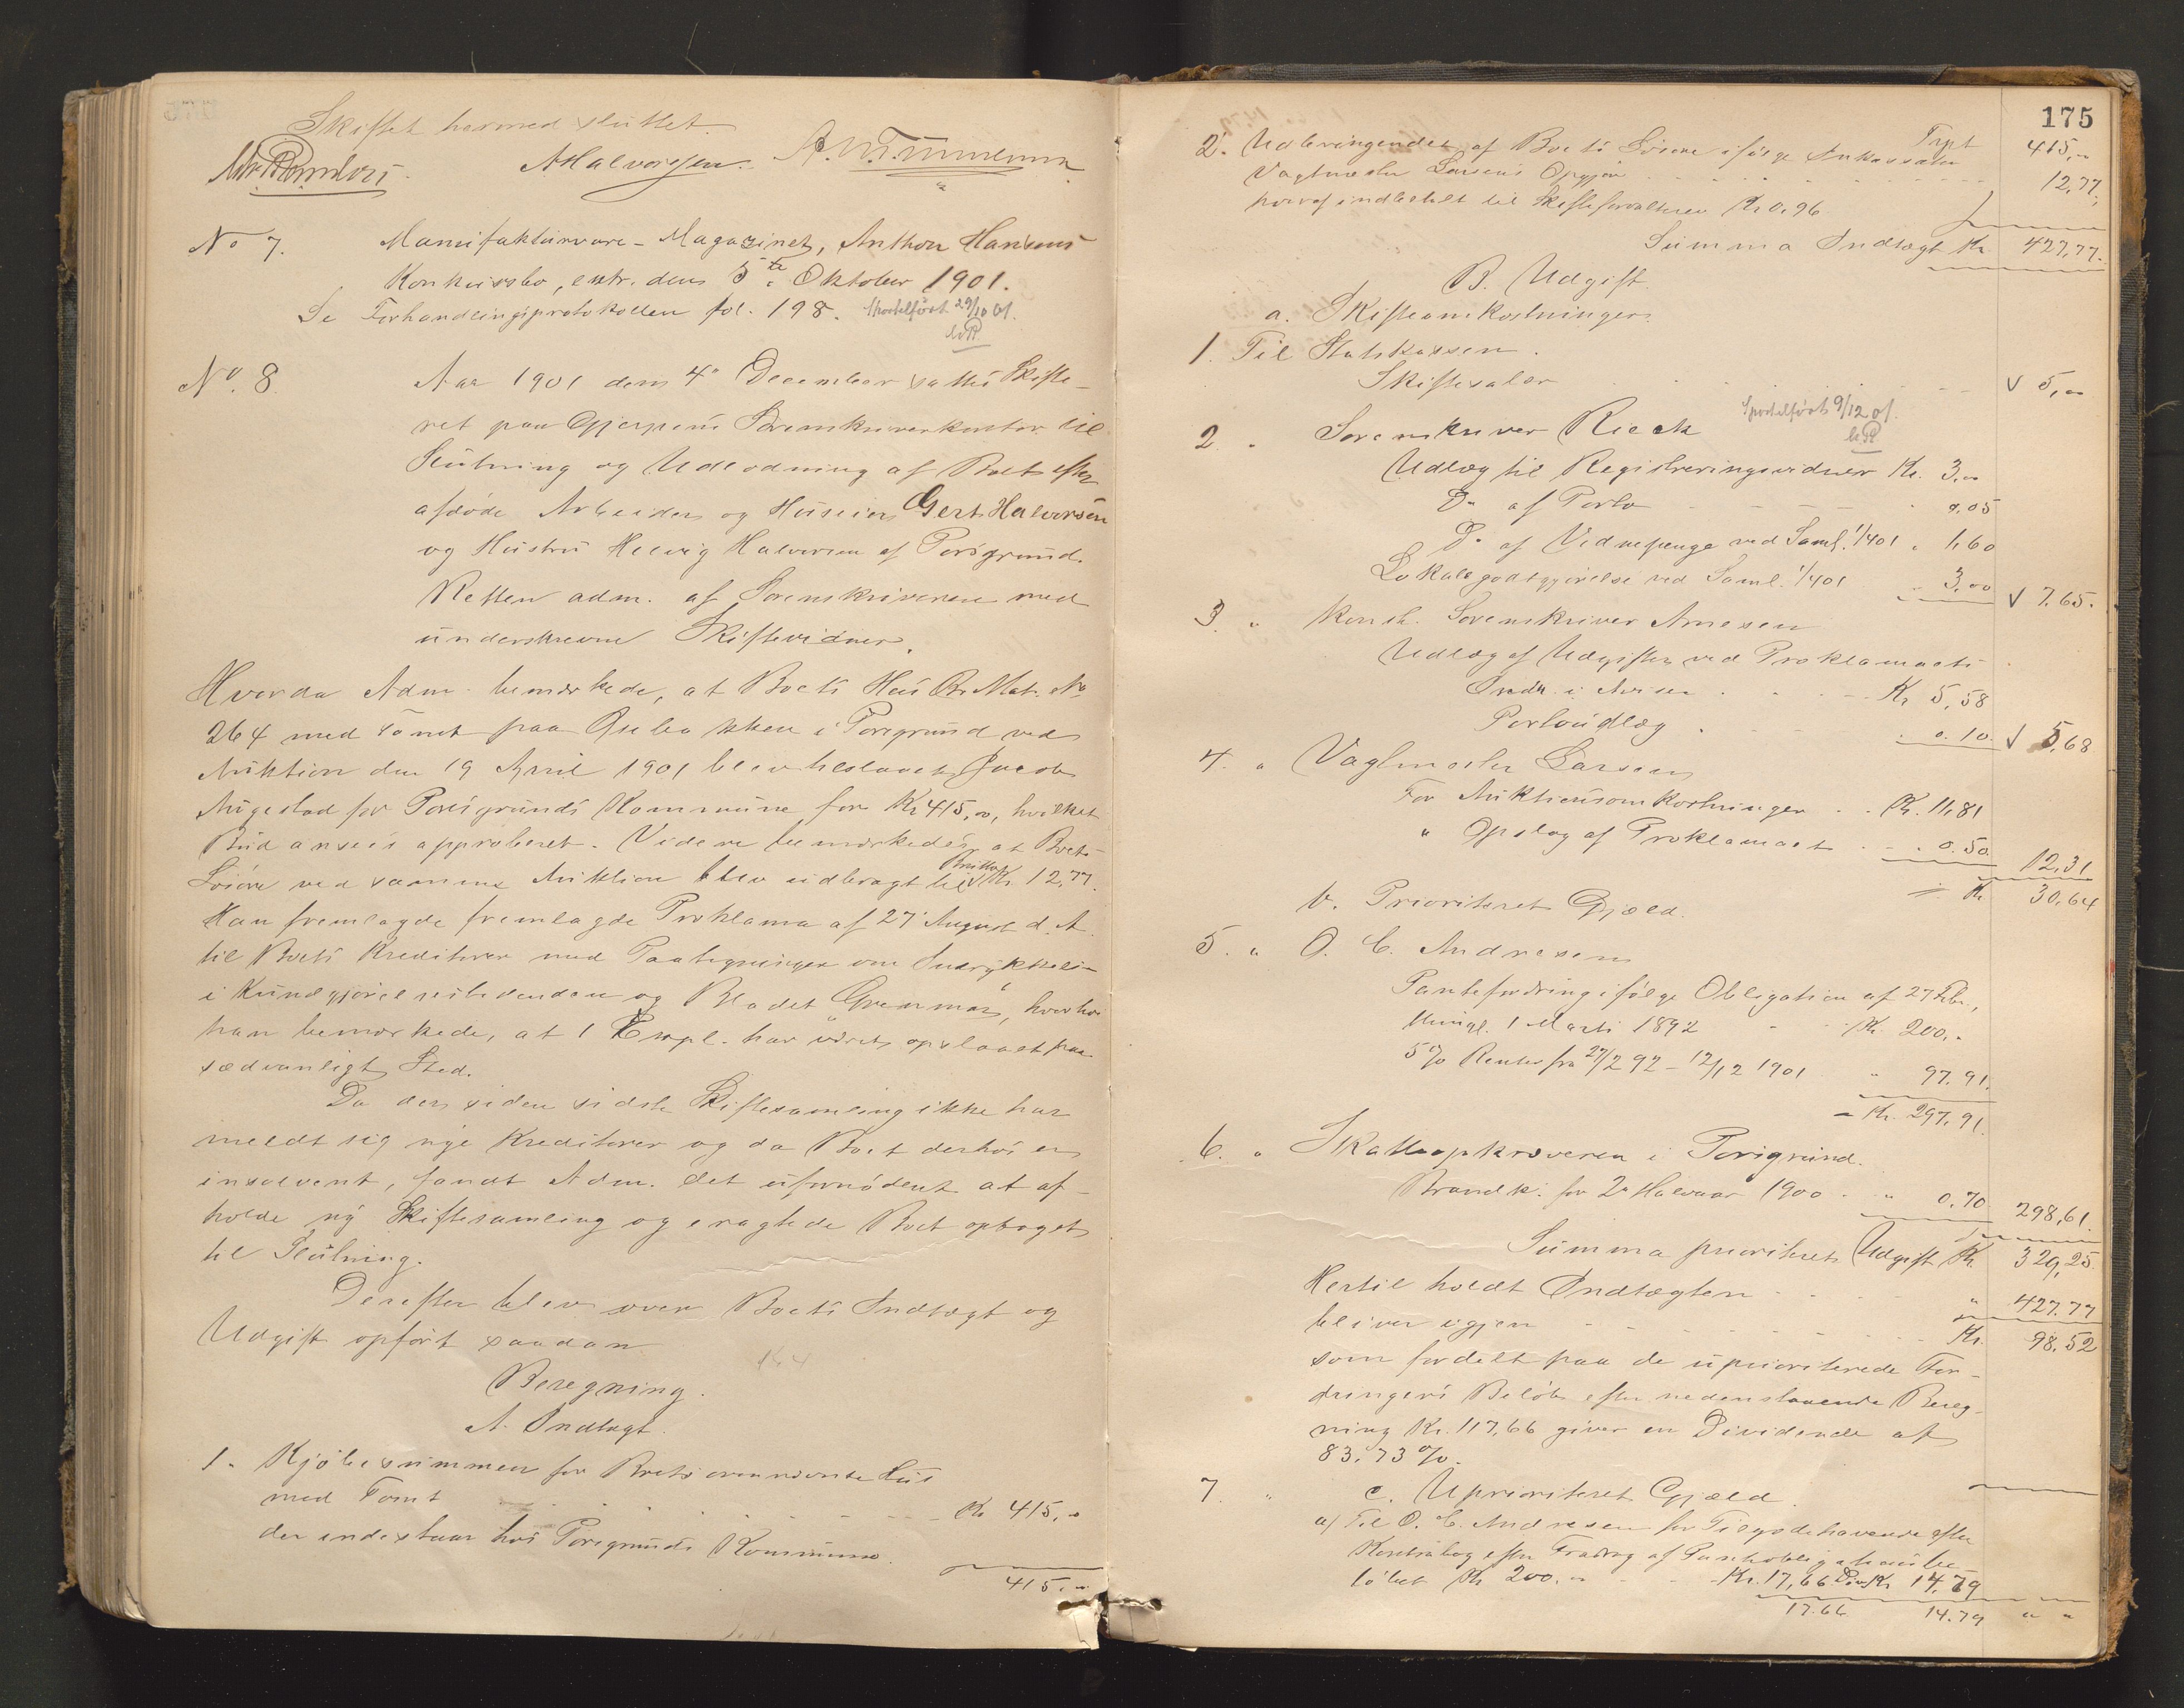 Skiftet hermed sluttet.
AHalvorsen.
No 7. Manufakturvare-Magazinet, Anthon Hansens
Konkursbo, extr. den 5te Oktober 1901.
Se Forhandlingsprotokollen fol. 198. Sportelført 29/10 01.
No. 8. Aar 1901 den 4de December sattes Skifte-
ret paa Gjerpens Sorenskriverkontor til
Slutning og Udlodning af Boet efter
afdøde Arbeider og Huseier Gert Halvorsen
og Hustru Helvig Halvorsen af Porsgrund.
Retten adm. af Sorenskriveren med
underskrevne Skiftevidner.
Hvorda Adm. bemærkede, at Boets Hus Br. Mat. No
264 med Tomt paa Øvebakken i Porsgrund ved
Auktion den 19 April 1901 blev tilslaaet Jacob
Augestad for Porsgrunds Kommune for Kr 415,00, hvilket
Bud ansees approberet. Videre bemærkedes, at Boets
Løsøre ved samme Auktion blev udbragt til Brutto Kr 12,77.
Han fremlagde fremlagde Proklama af 27 August d. A.
til Boets Kreditorer med Paategninger om Indrykkelse
i Kundgjørelsestidenden og Bladet „Grenmar", hvorhos
han bemærkede, at 1 Expl. har været opslaaet paa
sædvanligt Sted.
Da der siden sidste Skiftesamling ikke har
meldt sig nye Kreditorer og da Boet derhos er
insolvent, fandt Adm. det ufornødent at af-
holde ny Skiftesamling og eragtede Boet optaget
til Slutning.
Derefter blev over Boets Indtægt og
Udgift opført saadan
164
Beregning.
A. Indtægt.
1. Kjøbesummen for Boets ovennævnte Hus
med Tomt Kr 415,00
der indestaar hos Porsgrunds Kommune.
415,00
175
Trpt 415,00
2. Udbringendet af Boets Løsøre ifølge Inkassator
Vagtmester Larsens Opgjør 12,77
hvoraf indbetalt til Skifteforvalteren Kr 0,96
Summa Indtægt Kr. 427,77.
B. Udgift.
a. Skifteomkostninger.
1. Til Statskassen.
Skiftesalær V 5,00
Sportelført 9/12 01.
2 „ Sorenskriver Rieck
Udlæg til Registreringsvidner Kr. 3,00
Do af Porto 0,05
Do af Vidnepenge ved Saml. 1/4 01 „ 1,60
Lokalegodtgjørelse ved Saml. 1/4 01 3,00 V 7,65.
3. „ Konst. Sorenskriver Arnesen
Udlæg af Udgifter ved Proklamaets
Indr. i Avisen Kr 5,58
Portoudlæg 0.10. V 5,68
4. „ Vagtmester Larsen
For Auktionsomkostninger Kr. 11,81
„ Opslag af Proklamaet 0.50. 12,31
Kr 30,64
b. Prioriteret Gjæld.
5. „ O. C. Andresen
Pantefordring ifølge Obligation af 27 Febr.,
thingl. 1 Marts 1892 Kr. 200,-
5 % Renter fra 27/2 92 - 12/12 1901 „ 97.91.
Kr. 297,91.
6. „ Skatteopkræveren i Porsgrund.
Brandk. for 2det Halvaar 1900 „ 0,70 298,61.
Summa prioriteret Udgift Kr. 329,25.
Hertil holdt Indtægten „ 427.77
bliver igjen Kr. 98,52
som fordelt paa de uprioriterede For-
dringers Beløb efter nedenstaaende Bereg-
ning Kr. 117,66 giver en Dividende af
83.73 %.
7. „ c. Uprioriteret Gjæld.
a/ Til O. C. Andresen for Tilgodehavende efter
Kontrabog efter Fradrag af Panteobligationsbe-
løbet Kr 200.- Kr. 17,66 Div. Kr 14,79
17.66 14.79 „ „